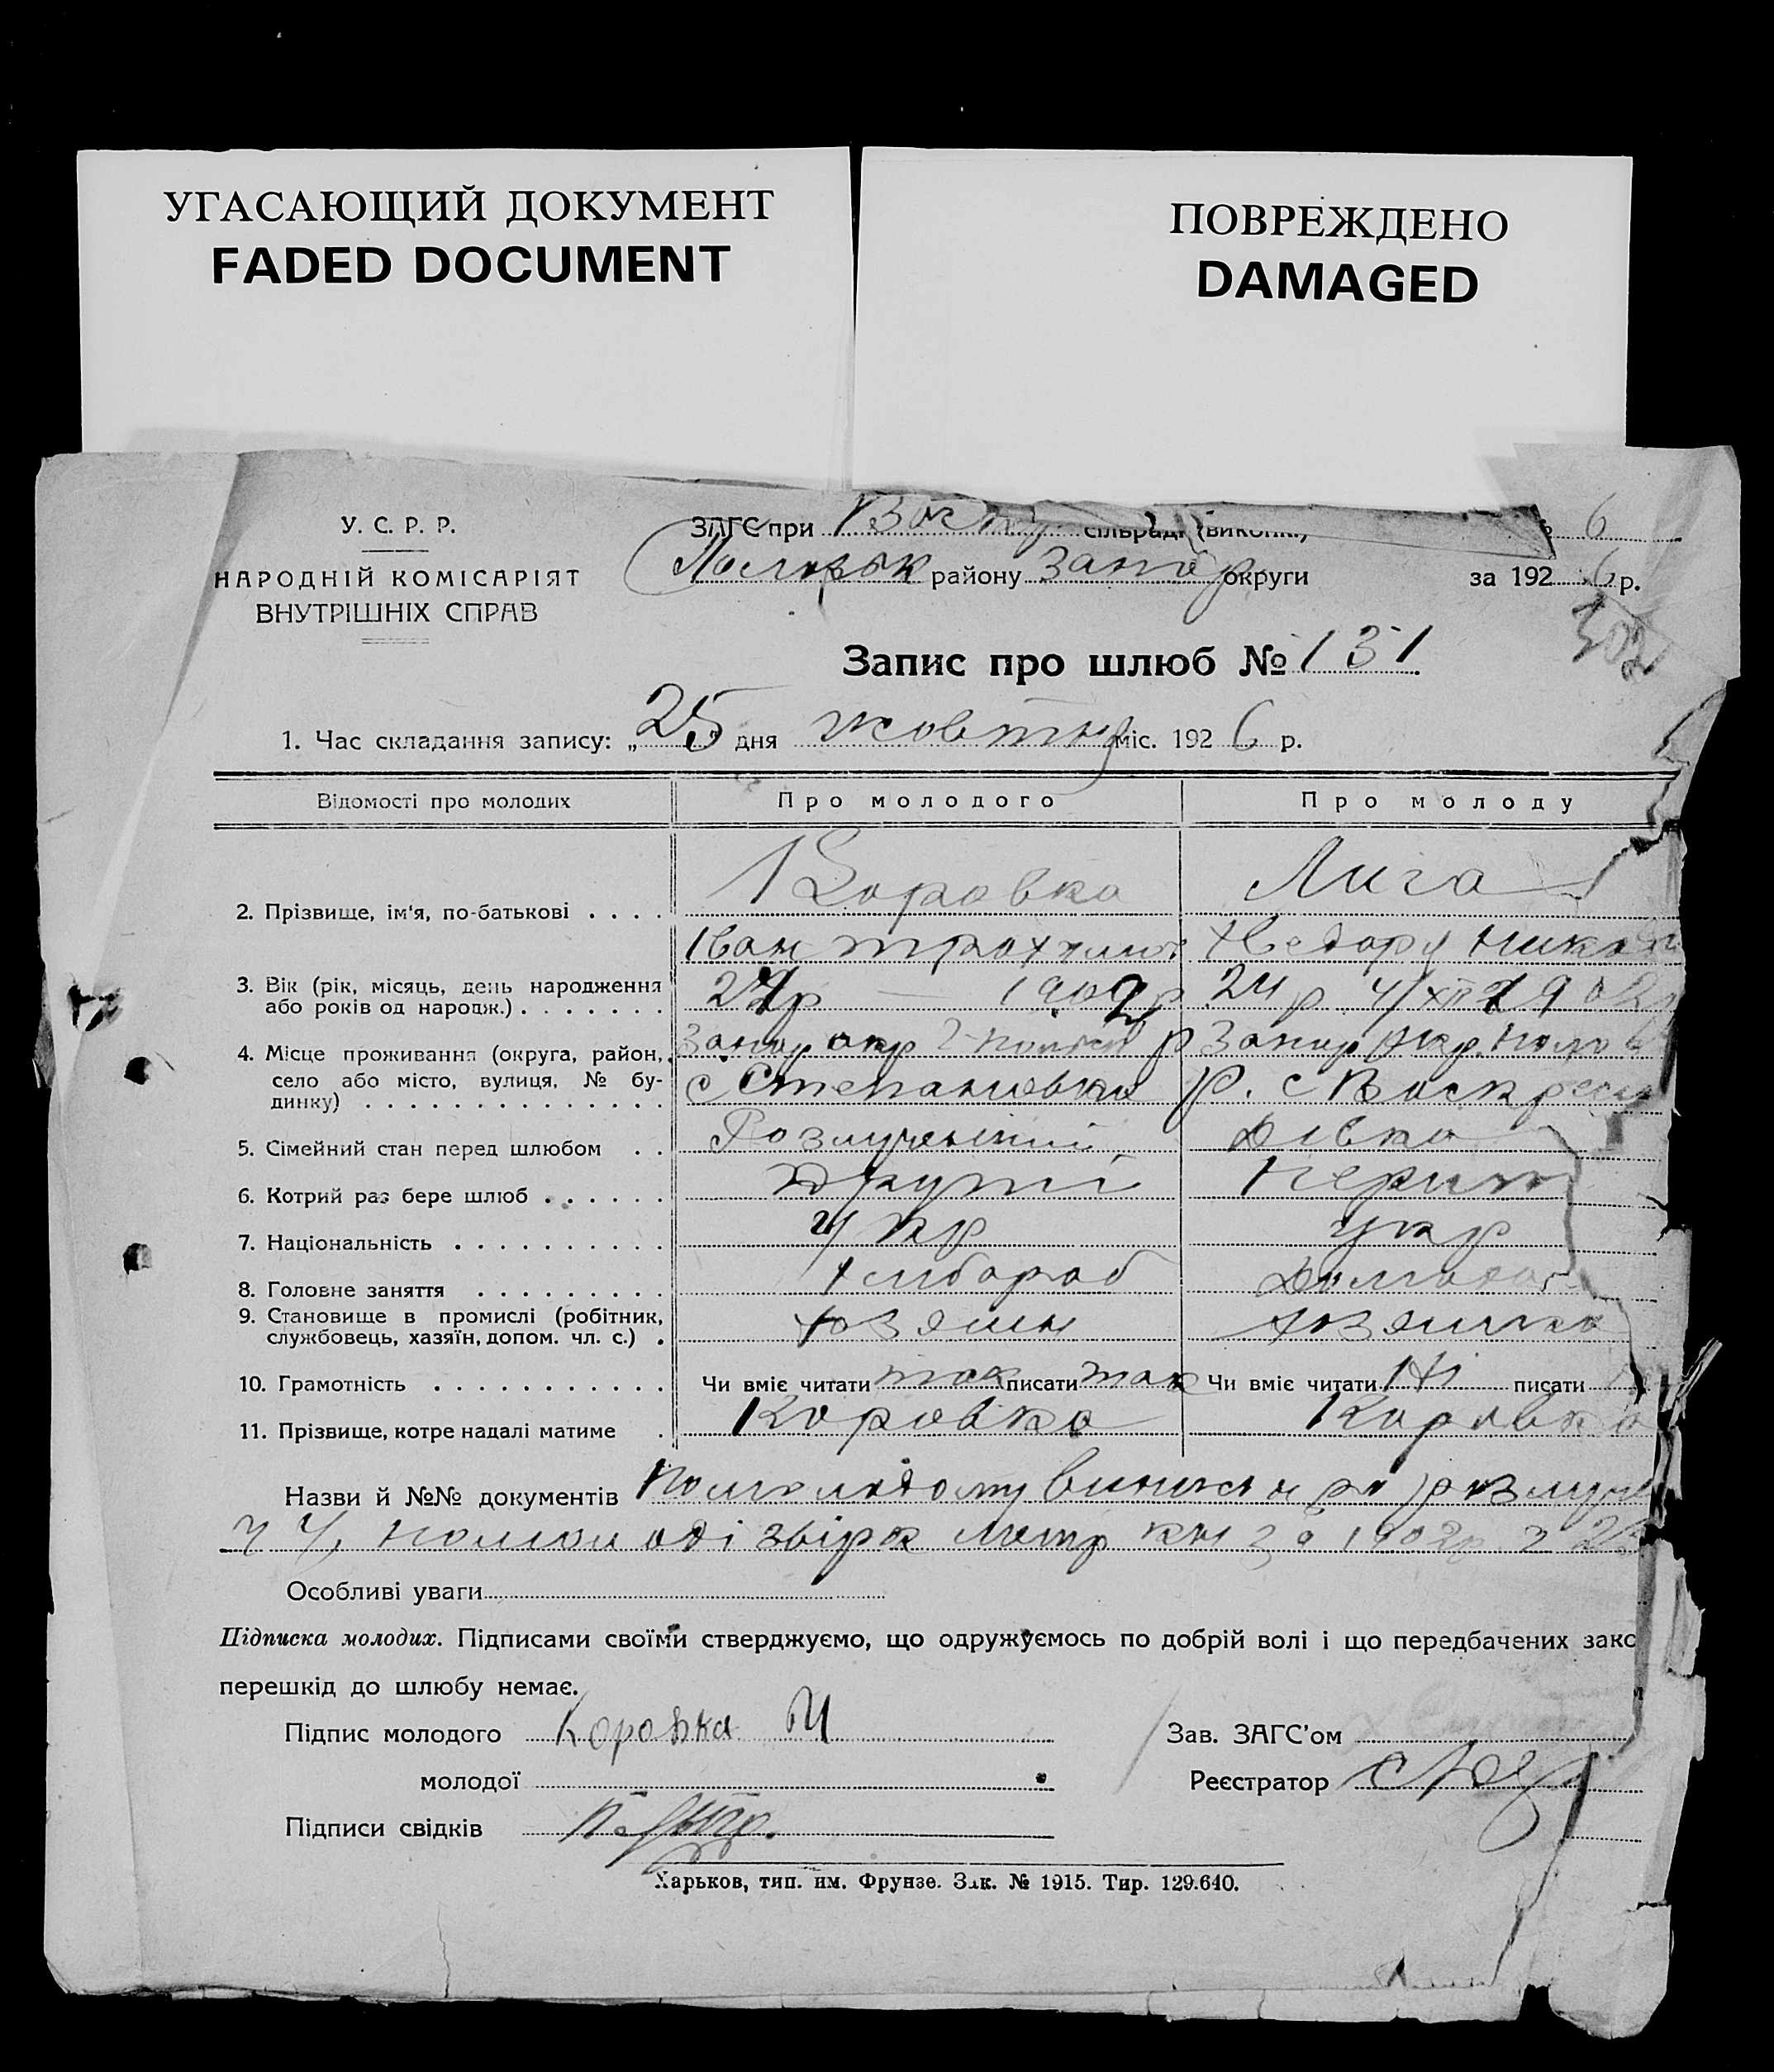 УГАСАЮЩИЙ ДОКУМЕНТ
FADED DOCUMENT
ПОВРЕЖДЕНО
DAMAGED
У. С. Р. Р.
НАРОДНІЙ КОМІСАРІЯТ
ВНУТРІШНІХ СПРАВ
ЗАГС при сільраді (виконк.) 6
району Запор округи за 1926 р.
Запис про шлюб № 131
1. Час складання запису: „25" дня жовтня міс. 1926 р.
Відомості про молодих Про молодого Про молоду
2. Прізвище, ім'я, по-батькові . . . . Коровка Лига
Іван Трохимов Хведора
3. Вік (рік, місяць, день народження 1902 р 24 р 4/XII 1902
або років од народж.) . . . . . . .
4. Місце проживання (округа, район, Запор окр р Запор окр.
село або місто, вулиця, № бу- с Степановка р. с Воскресен
динку) . . . . . . . . . . . . . .
5. Сімейний стан перед шлюбом . . Розлученний Дівка
6. Котрий раз бере шлюб . . . . . . Другий Перши
7. Національність . . . . . . . . . . Укр Укр
8. Головне заняття . . . . . . . . . хлібороб Домохаз
9. Становище в промислі (робітник, хозяин хозяйка
службовець, хазяїн, допом. чл. с.) .
10. Грамотність . . . . . . . . . . . Чи вміє читати так писати так Чи вміє читати Ні писати
11. Прізвище, котре надалі матиме . Коровка Коровка
Назви й №№ документів По молодому виписка про розлуче
по молоді збірк метр кн за 1902р.
Особливі уваги
Підписка молодих. Підписами своїми стверджуємо, що одружуємось по добрій волі і що передбачених зако
перешкід до шлюбу немає.
Підпис молодого Коровка И Зав. ЗАГС'ом
молодої Реєстратор
Підписи свідків
Харьков, тип. им. Фрунзе. Зак. № 1915. Тир. 129.640.